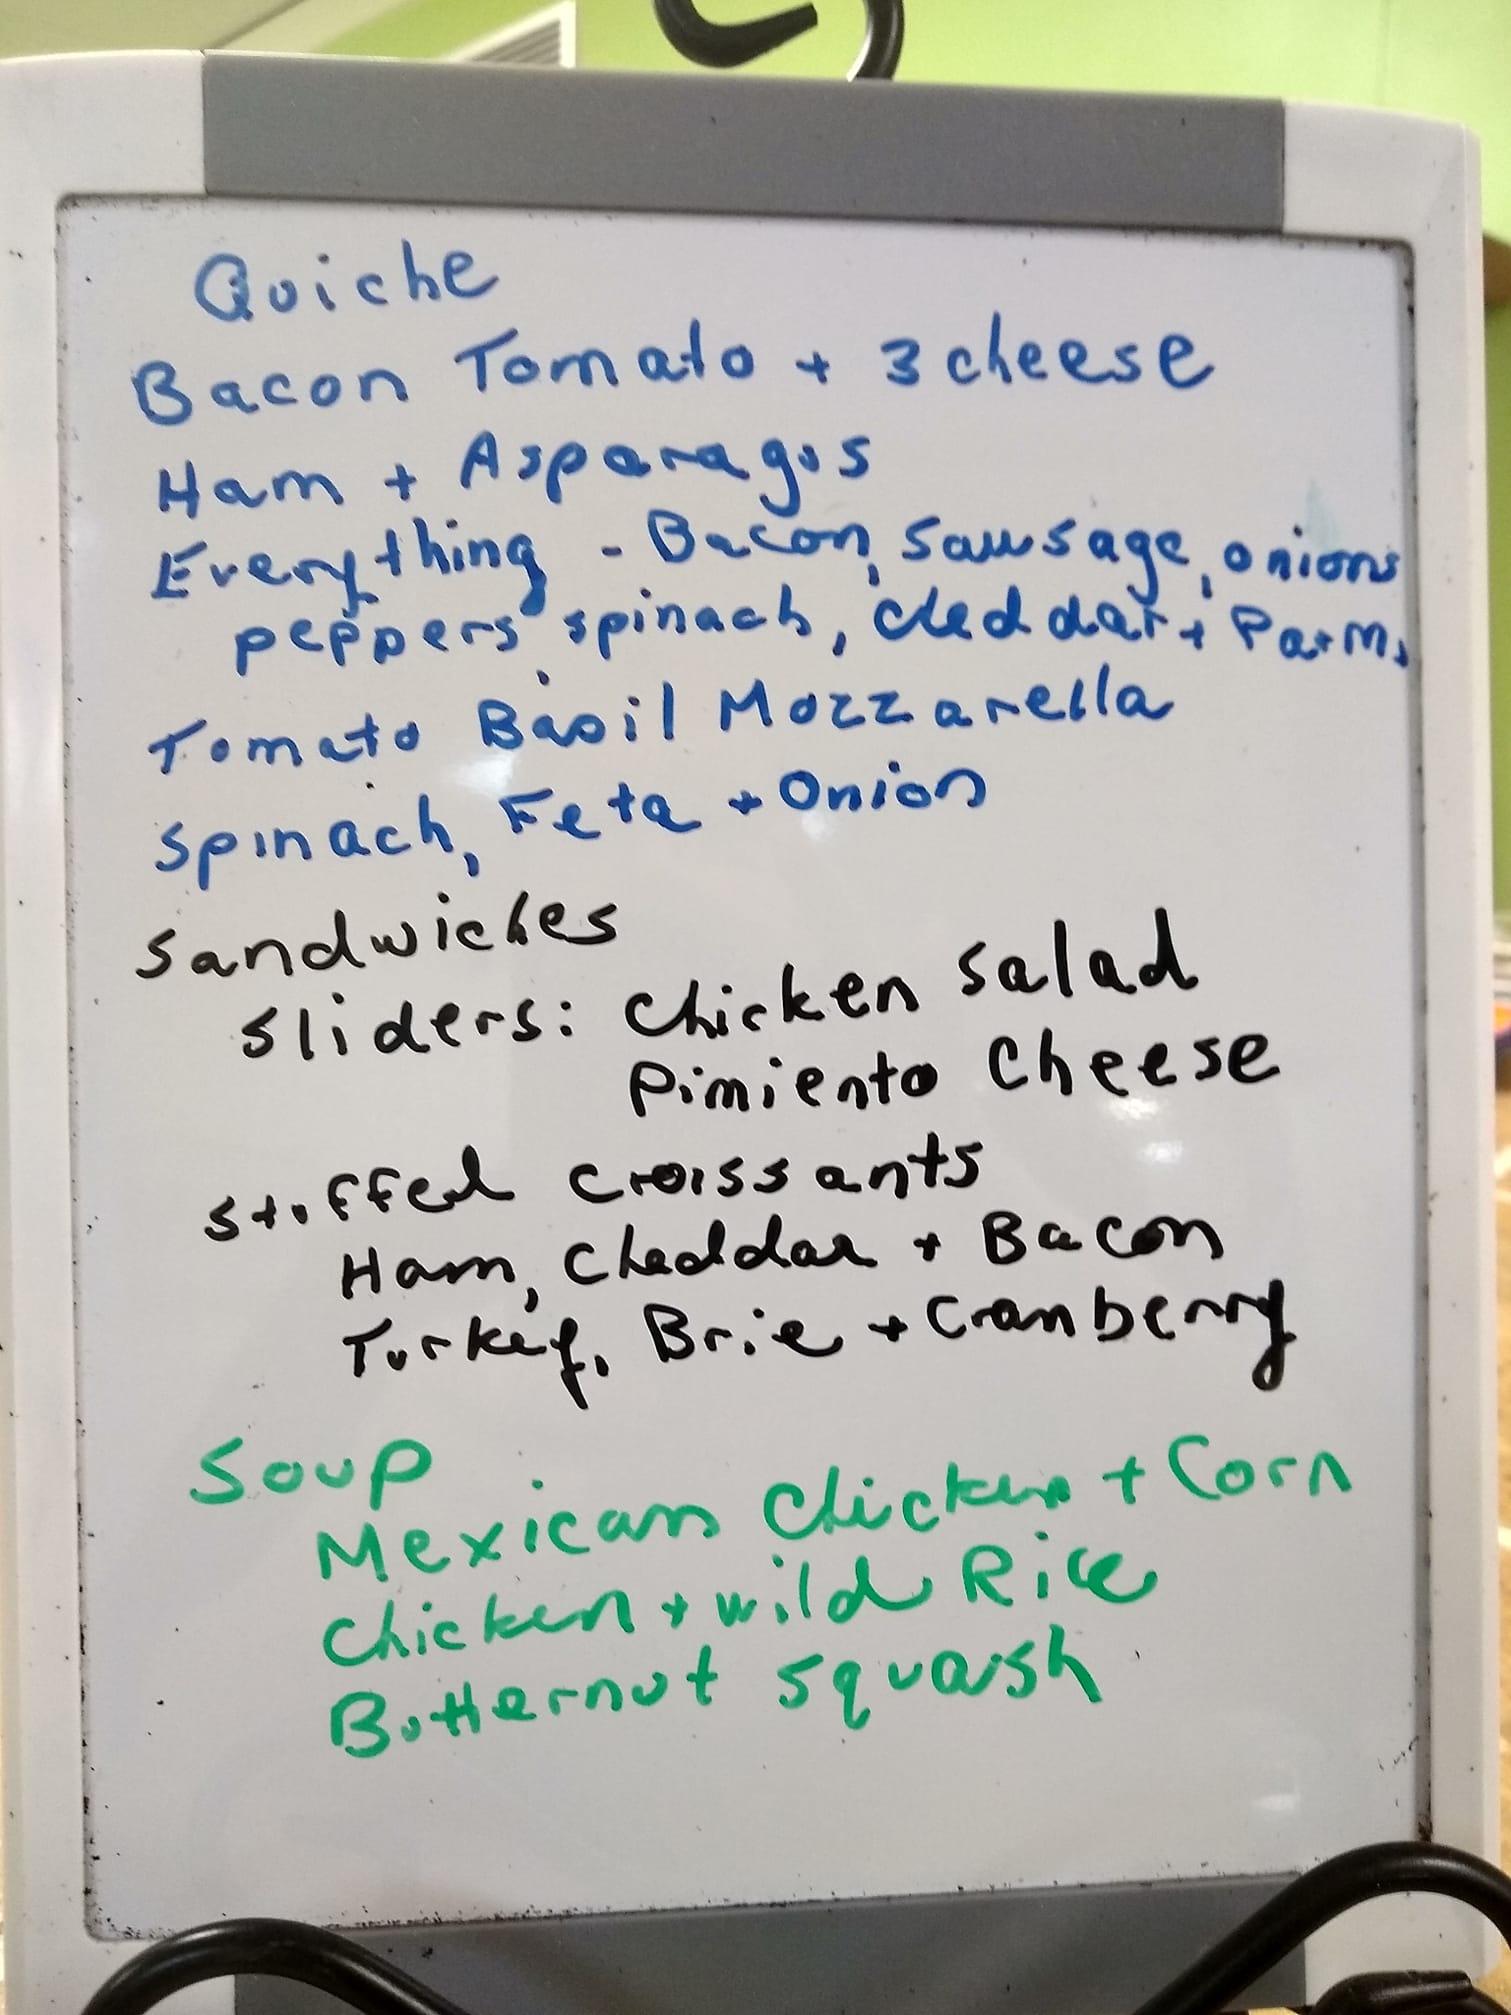 Quiche
Bacon Tomato + 3 cheese
Ham + Asparagus
Everything - Bacon, Sausage, onions
peppers, spinach, cheddar + Parm,
Tomato Basil Mozzarella
Spinach, Feta + Onion
Sandwiches
Sliders: Chicken Salad
Pimiento Cheese
Stuffed Croissants
Ham, Cheddar + Bacon
Turkey, Brie + Cranberry
Soup
Mexican Chicken + Corn
Chicken + Wild Rice
Butternut Squash